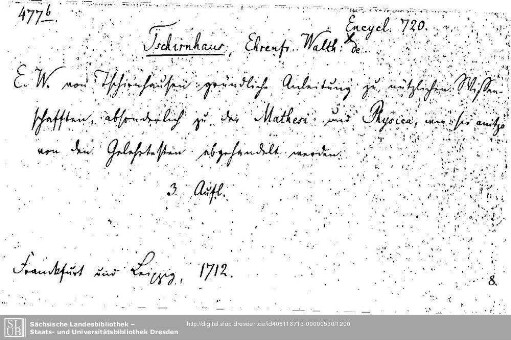 477b
Encycl. 720.
Tschirnhaus, Ehrenfr. Walth. de
E. W. von Tschirnhausen gründliche Anleitung zu nützlichen Wissen-
schafften, absonderlich zu der Mathesi und Physica, wie sie anitzo
von den Gelehrtesten abgehandelt werden.
3. Aufl.
Frankfurt und Leipzig, 1712.
8.
SLUB
Sächsische Landesbibliothek –
Staats- und Universitätsbibliothek Dresden